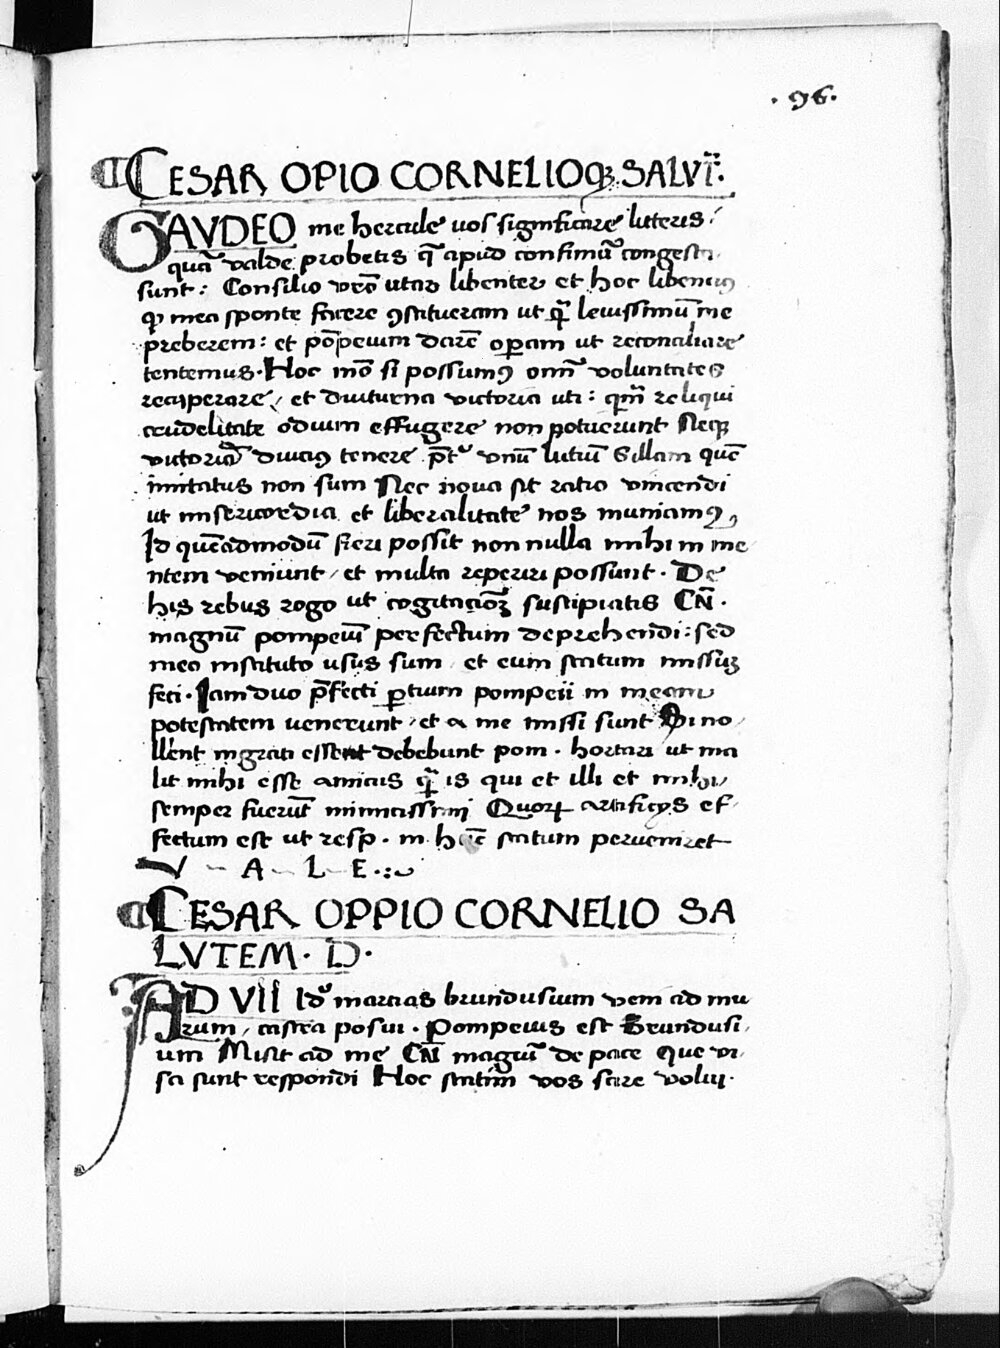 .96.
CESAR OPIO CORNELIOQꝫ SALVT̃.
GAVDEO me hercule uos significare litteris
quā valde probetis q̄ apud confiniū congesta
sunt: Consilio vr̄o utar libenter et hoc libencius
qꝫ mea sponte facere ꝯstitueram ut q̃ leuissimū me
preberem: et pōpeium darē oꝑam ut reconciliare
tentemus. Hoc mō si possumꝰ om̄ voluntates
recuperare, et diuturna victoria uti: qm̄ reliqui
crudelitate odium effugere non potuerunt Neqꝫ
victoriā diucius tenere p̄t vnū lutiū Sillam quē
imitatus non sum Nec noua sit ratio vincendi
ut misericordia et liberalitate nos muniamꝰ,
Id quēadmodū fieri possit non nulla mihi in me
ntem veniunt, et multa reperiri possunt. De
his rebus rogo ut cogitacioꝫ suscipiatis CN̄.
magnū pompeiū perfectum deprehendi: sed
meo instituto usus sum, et eum statum missuꝫ
feci. Iam duo p̄fecti ꝑtium pompeii in meam
potestatem uenerunt, et a me missi sunt Si no
llent ingrati essent debebunt pom. hortari ut ma
lit mihi esse amicus q̃ is qui et illi et mihi
semper fuerūt inimicissimi Quoꝝ artificijs ef
fectum est ut resp. in hūc statum perueniret
V - A - L - E .:
CESAR OPPIO CORNELIO SA
LVTEM. D.
AD VII Id' marcias brundusium veni ad mu
rum, castra posui. Pompeius est Brundusi
um Misit ad me CN̄ magiū de pace Que vi
sa sunt respondi Hoc statim vos scire volui.